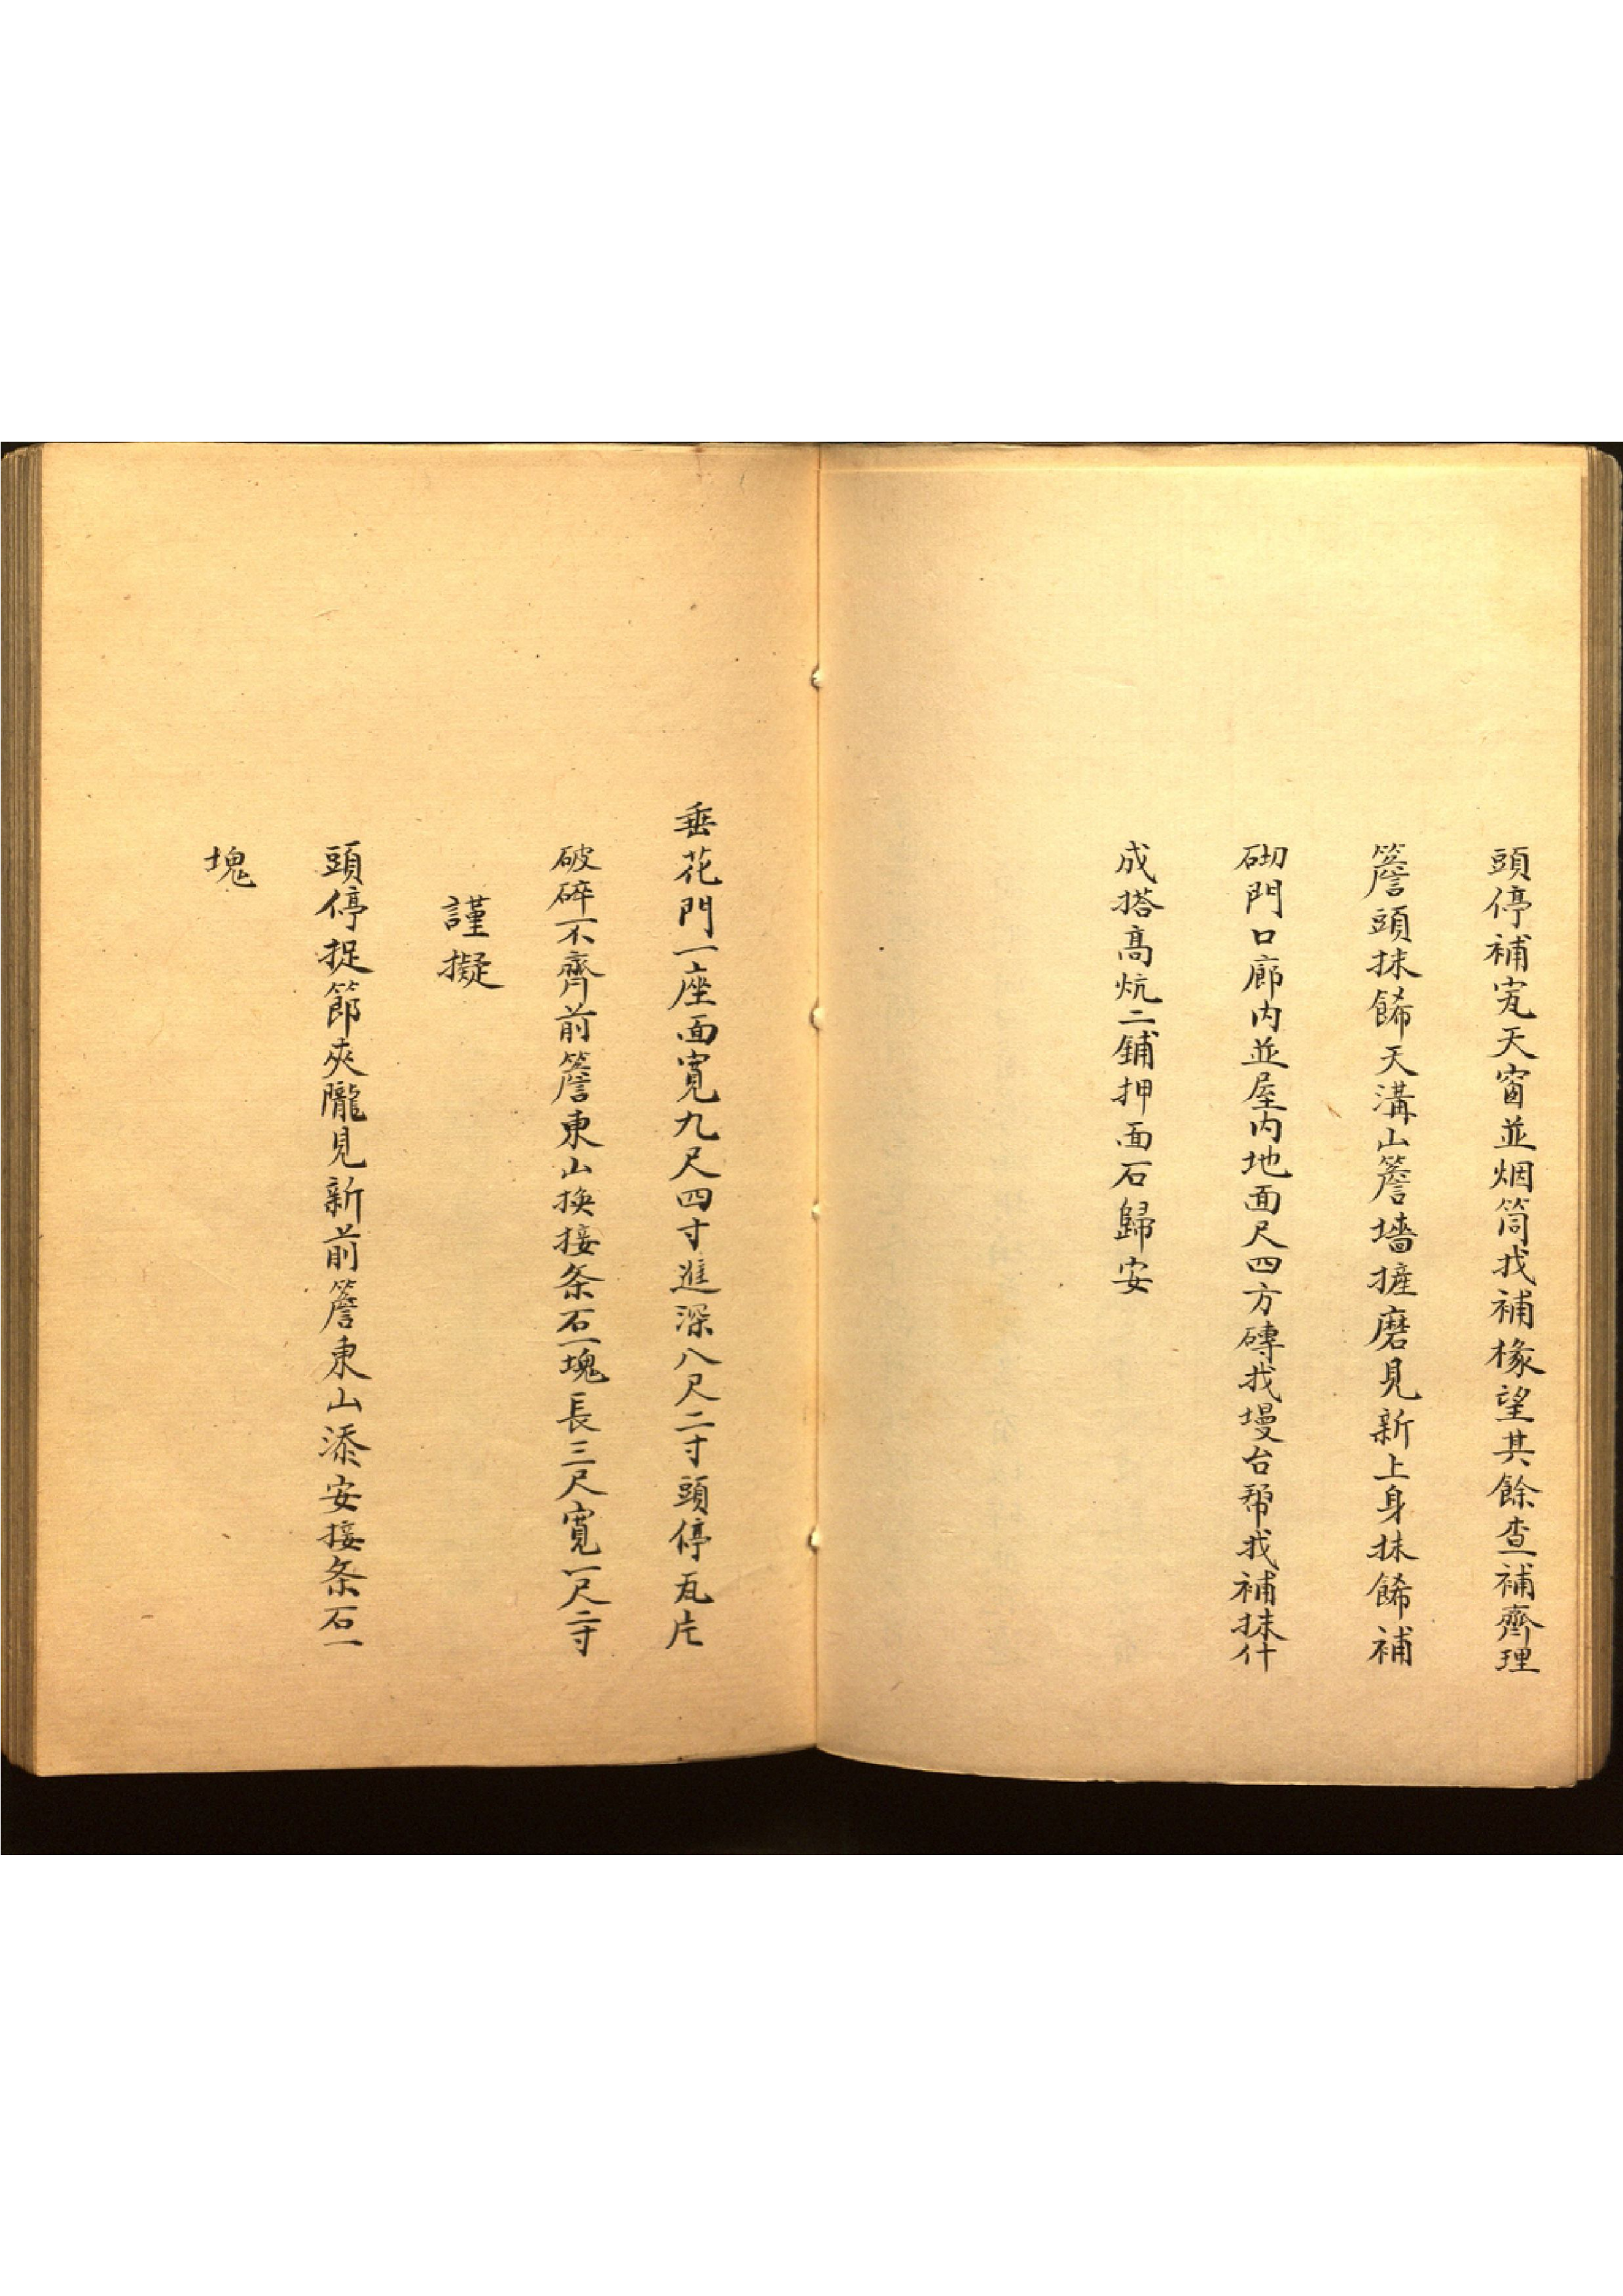 頭停補宽天窗並烟筒找補椽望其餘查補齊理
簷頭抹餙天溝山簷墻摌磨見新上身抹餙補
砌門口廊内並屋内地面尺四方磚找墁台帮找補抹什
成搭髙炕二鋪押面石歸安
垂花門一座面寛九尺四寸進深八尺二寸頭停瓦片
破碎不齊前簷東山換接条石一塊長三尺寛一尺二寸
謹擬
頭停捉節夾隴見新前簷東山添安接条石一
塊